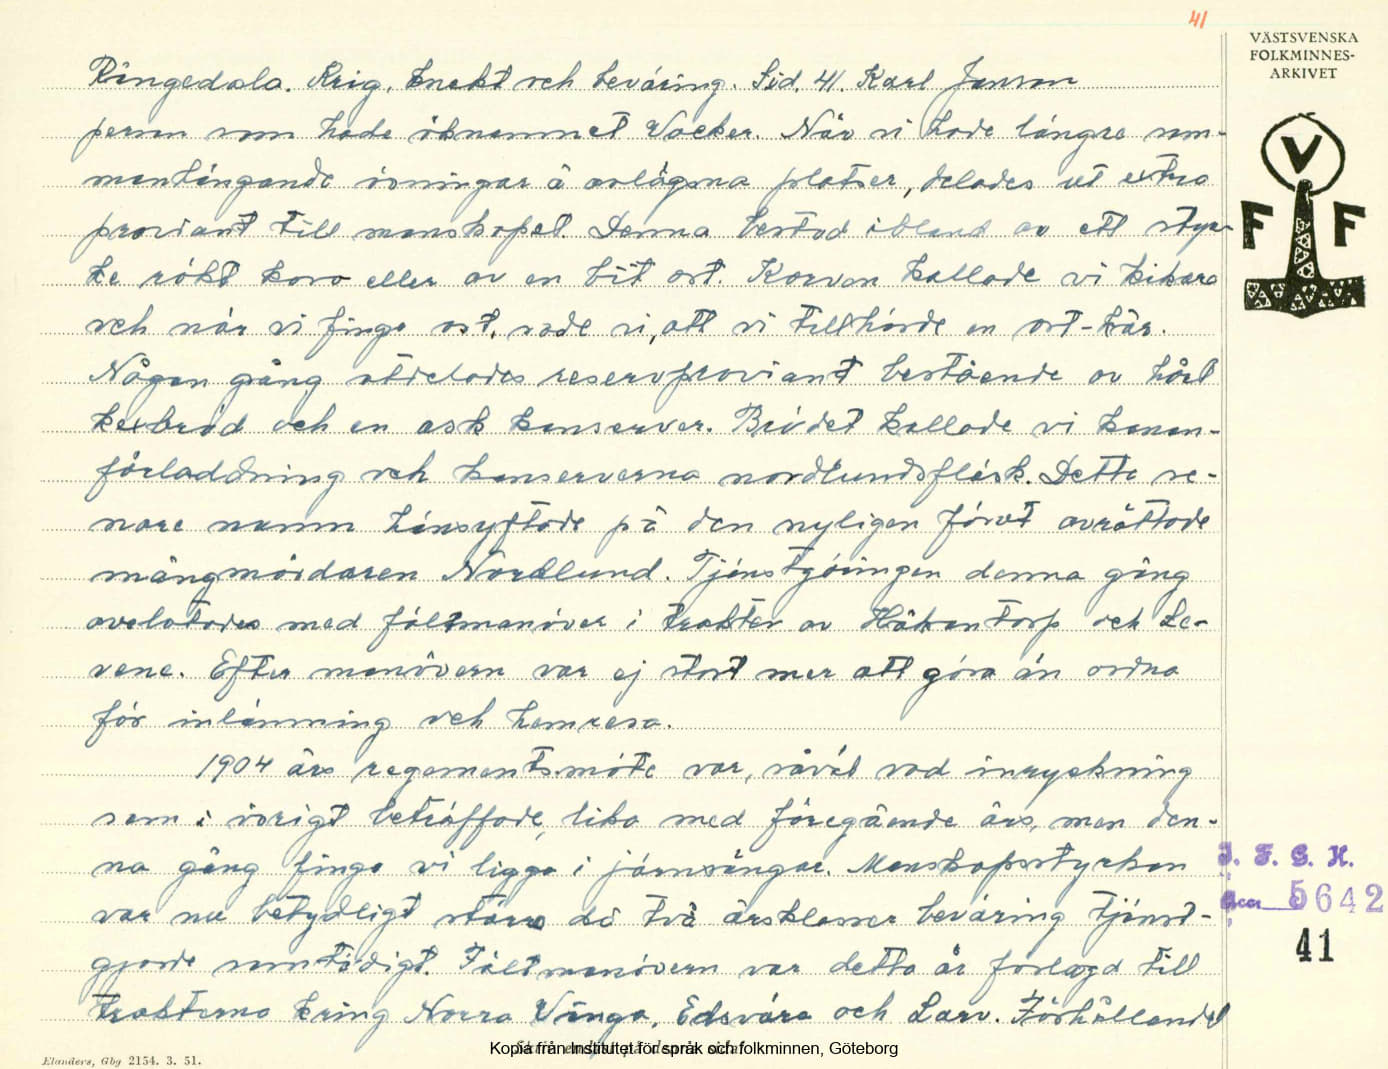 41
VÄSTSVENSKA
FOLKMINNES-
ARKIVET
Ringedala. Krig, knekt och beväring. Sid. 41. Karl Janson
person som hade öknamnet Vacker. När vi hade längre sam-
manhängande övningar å avlägsna platser, delades ut extra
proviant till manskapet. Denna bestod ibland av ett styc-
ke rökt korv eller av en bit ost. Korven kallade vi kikare
och när vi fingo ost, sade vi, att vi tillhörde en ost-kår.
Någon gång utdelades reservproviant bestående av hårt
kexbröd och en ask konserver. Brödet kallade vi kanon-
förladdning och konserverna nordlundsfläsk. Detta se-
nare namn hänsyftade på den nyligen förut avrättade
mångmördaren Nordlund. Tjänstgöringen denna gång
avslutades med fältmanöver i trakter av Håkantorp och Le-
vene. Efter manövern var ej stort mer att göra än ordna
för inlämning och hemresa.
1904 års regementsmöte var, såväl vad inryckning
som i övrigt beträffade, lika med föregående års, men den-
na gång fingo vi ligga i järnsängar. Manskapsstyrkan
var nu betydligt större då två årsklasser beväring tjänst-
gjorde samtidigt. Fältmanövern var detta år förlagd till
trakterna kring Norra Vånga, Edsvära och Larv. Förhållandet
V
F F
I. F. G. H.
Acc. 5642
41
Elanders, Gbg 2154. 3. 51.
Kopia från Institutet för språk och folkminnen, Göteborg